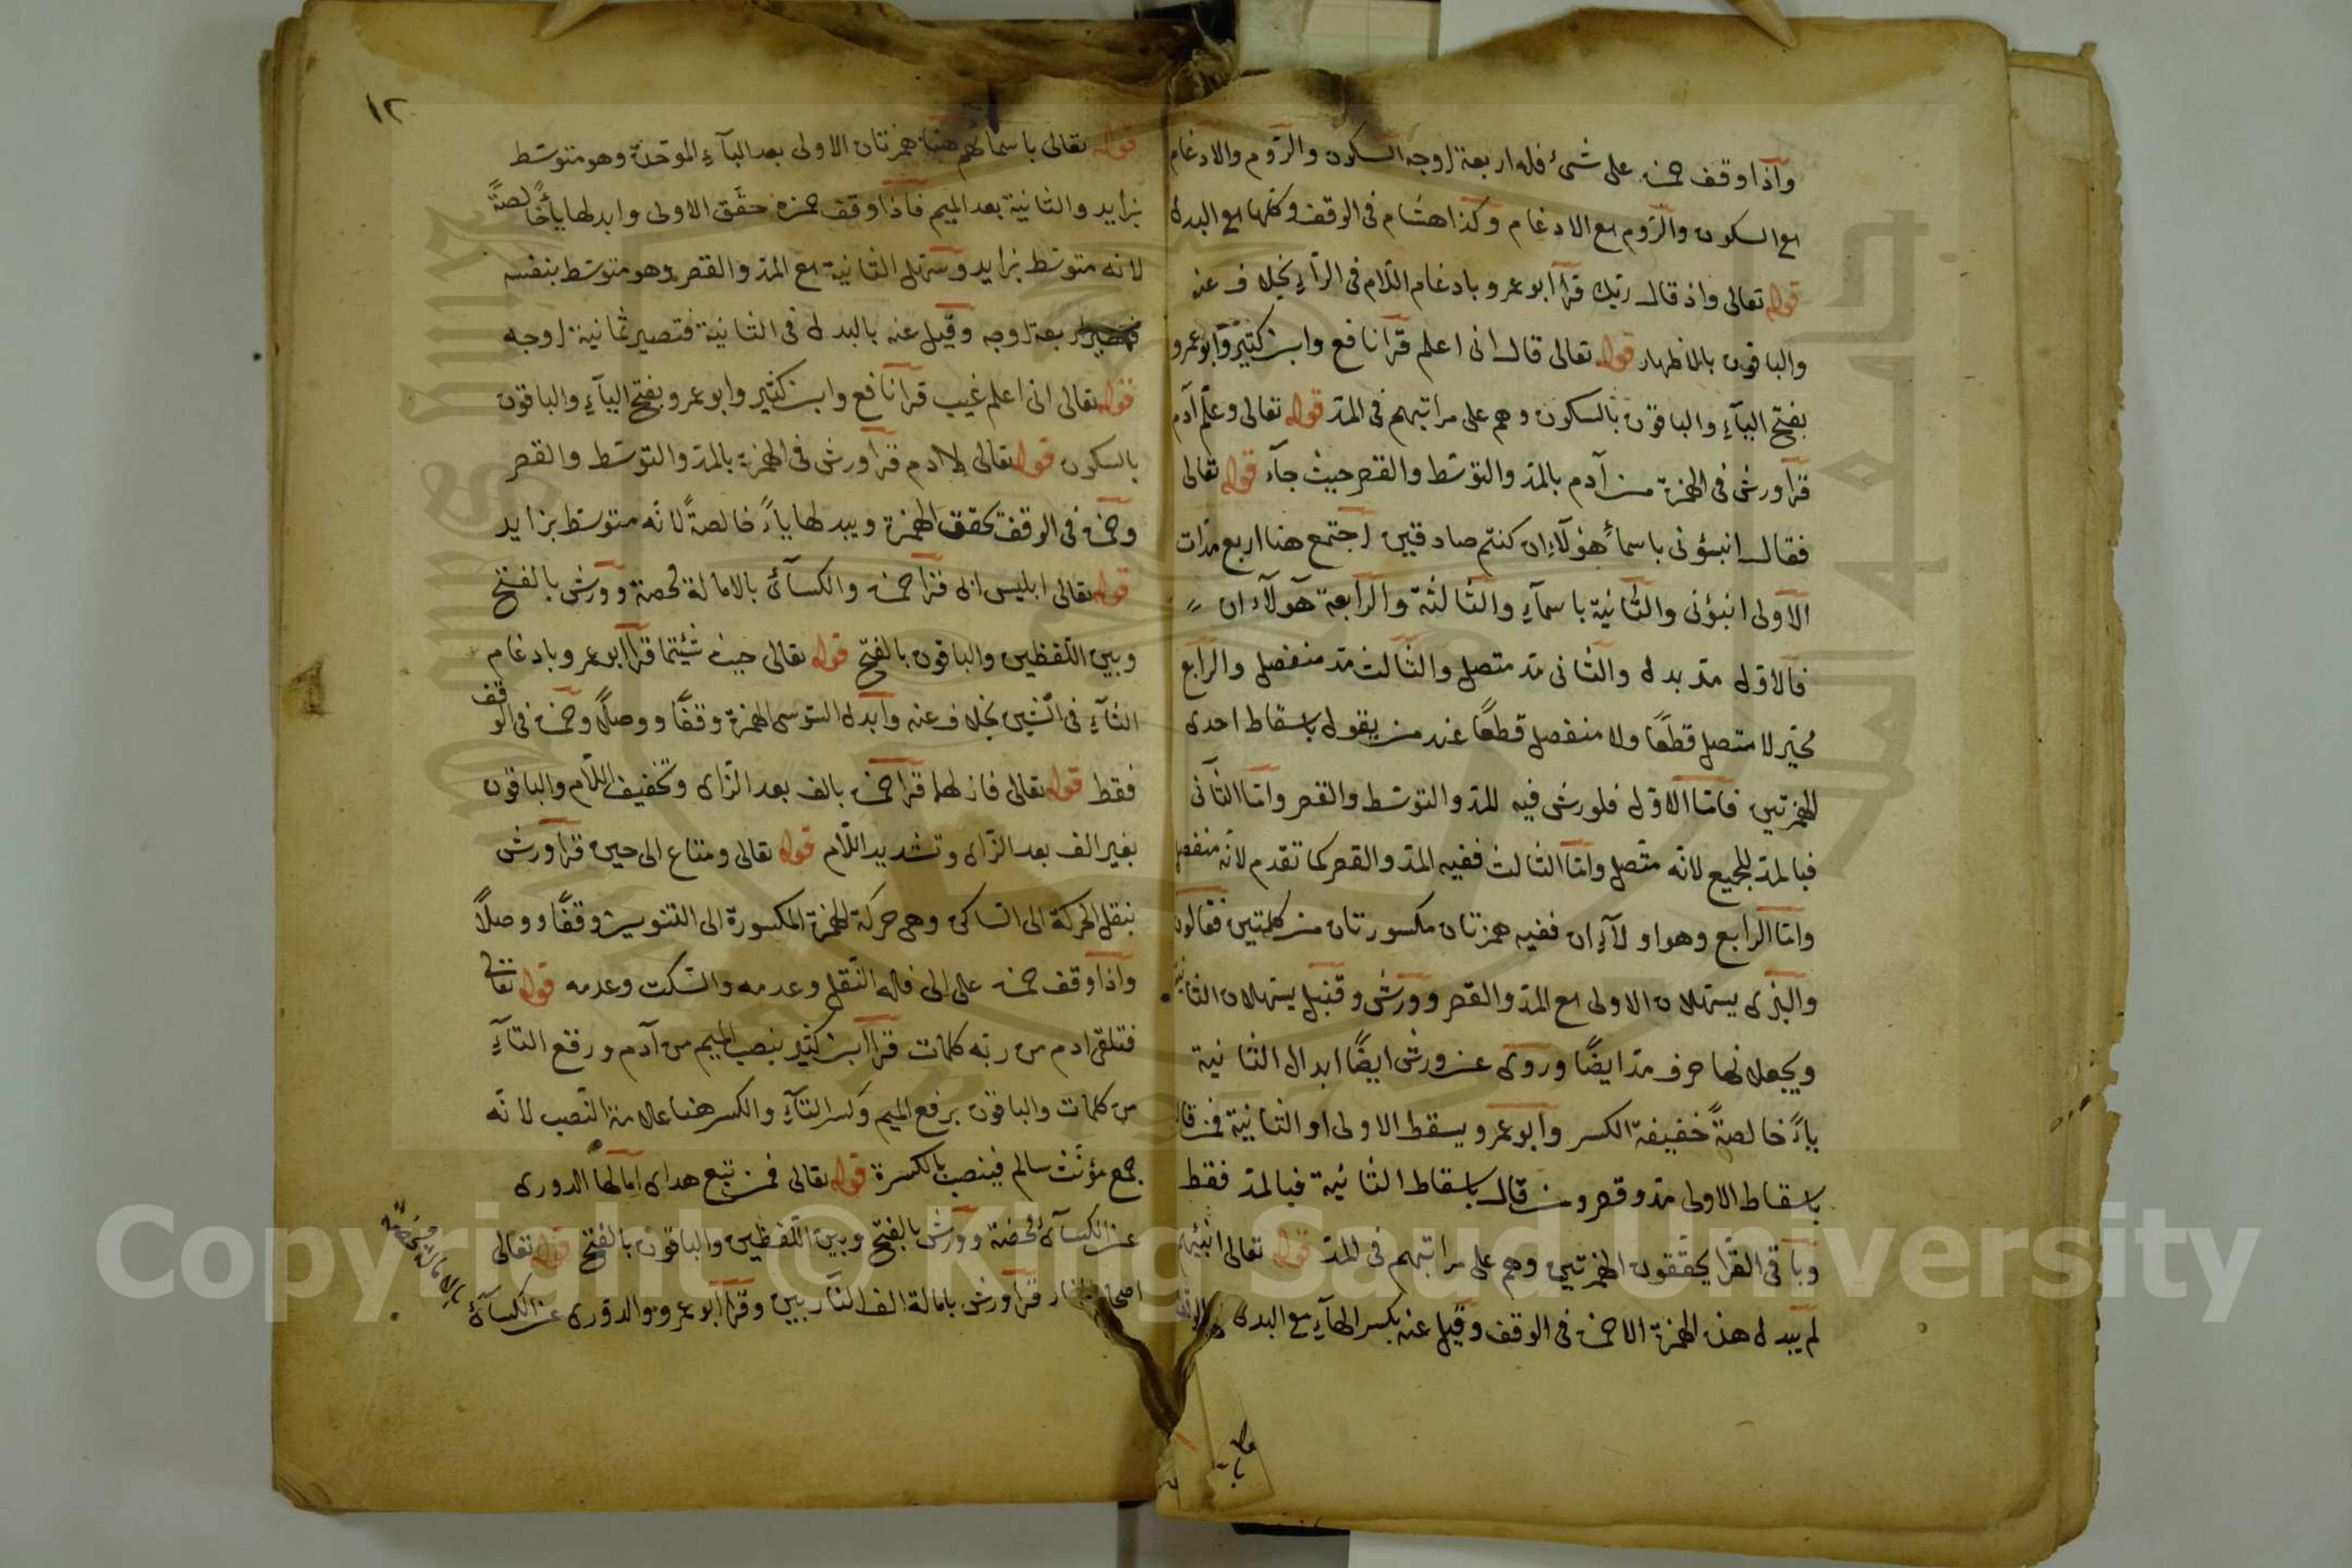 واذا وقف حمزة على شيء فله اربعة اوجه السكون والروم والادغام
مع السكون والروم مع الادغام وكذا هشام في الوقف وكلها مع البدل
قوله تعالى واذ قال ربك قرا ابو عمرو بادغام اللام في الرآء بخلاف عنه
والباقون بالاظهار قوله تعالى قال اني اعلم قرا نافع وابن كثير وابو عمرو
بفتح اليآء والباقون بالسكون وهم على مراتبهم في المد قوله تعالى وعلم آدم
قرا ورش في الهمزة من آدم بالمد والتوسط والقصر حيث جآء قوله تعالى
فقال انبؤنى باسمآء هؤلآء ان كنتم صادقين اجتمع هنا اربع مدات
الاولى انبؤنى والثانية باسمآء والثالثة والرابعة هؤلآء ان
فالاول مد بدل والثانى مد متصل والثالث مد منفصل والرابع
مخير لا متصل قطعًا ولا منفصل قطعًا عند من يقول باسقاط احدى
الهمزتين فاما الاول فلورش فيه المد والتوسط والقصر واما الثاني
فبالمد للجميع لانه متصل واما الثالث ففيه المد والقصر كما تقدم لانه منفصل
واما الرابع وهو اولآء ان ففيه همزتان مكسورتان من كلمتين فقالون
والبزى يسهلان الاولى مع المد والقصر وورش وقنبل يسهلان الثانية
ويجعلانها حرف مد ايضًا وروى عن ورش ايضًا ابدال الثانية
ياءً خالصةً خفيفة الكسر وابو عمرو يسقط الاولى او الثانية فمن قال
باسقاط الاولى مد وقصر ومن قال باسقاط الثانية فبالمد فقط
وباقى القرا يحققون الهمزتين وهم على مراتبهم فى المد قوله تعالى انبئهم
لم يبدل هذه الهمزة الا حمزة فى الوقف وقيل عنه بكسر الهآء مع البدل
١٢
قوله تعالى باسمائهم هنا همزتان الاولى بعد البآء الموحدة وهو متوسط
بزايد والثانية بعد الميم فاذا وقف حمزه حقق الاولى وابدلها ياءً خالصةً
لانه متوسط بزايد وسهل الثانية مع المد والقصر وهو متوسط بنفسه
اربعة اوجه وقيل عنه بالبدل فى الثانية فتصير ثمانية اوجه
قوله تعالى انى اعلم غيب قرا نافع وابن كثير وابو عمرو بفتح اليآء والباقون
بالسكون قوله تعالى لادم قرا ورش فى الهمزة بالمد والتوسط والقصر
وحمزة فى الوقف تحقق الهمزة ويبدلها ياءً خالصةً لانه متوسط بزايد
قوله تعالى ابليس ابى قرا حمزة والكسآئى بالامالة محضة وورش بالفتح
وبين اللفظين والباقون بالفتح قوله تعالى حيث شئيتما قرا ابو عمرو بادغام
الثآء فى الشين بخلاف عنه وابدل السوسى الهمزة وقفًا ووصلًا وحمزة فى الوقف
فقط قوله تعالى فازلهما قرا حمزة بالف بعد الزاى وتخفيف اللام والباقون
بغير الف بعد الزاى وتشديد اللام قوله تعالى ومتاع الى حين قرا ورش
بنقل الحركة الى الساكن وهى حركة الهمزة المكسورة الى التنوين وقفًا ووصلًا
واذا وقف حمزة على الى فله النقل وعدمه والسكت وعدمه قوله تعالى
فتلقى ادم من ربه كلمات قرا ابن كثير بنصب الميم من آدم ورفع التآء
من كلمات والباقون برفع الميم وكسر التآء والكسر هنا علامة النصب لانه
جمع مؤنث سالم فينصب بالكسرة قوله تعالى فمن تبع هداى امالها الدورى
عن الكسآئى محضة وورش بالفتح وبين اللفظين والباقون بالفتح قوله تعالى
اصحاب النار قرا ورش بامالة الف النار بين وقرا ابو عمرو والدورى عن الكسآئى
بالامالة محضة
Copyright © King Saud University